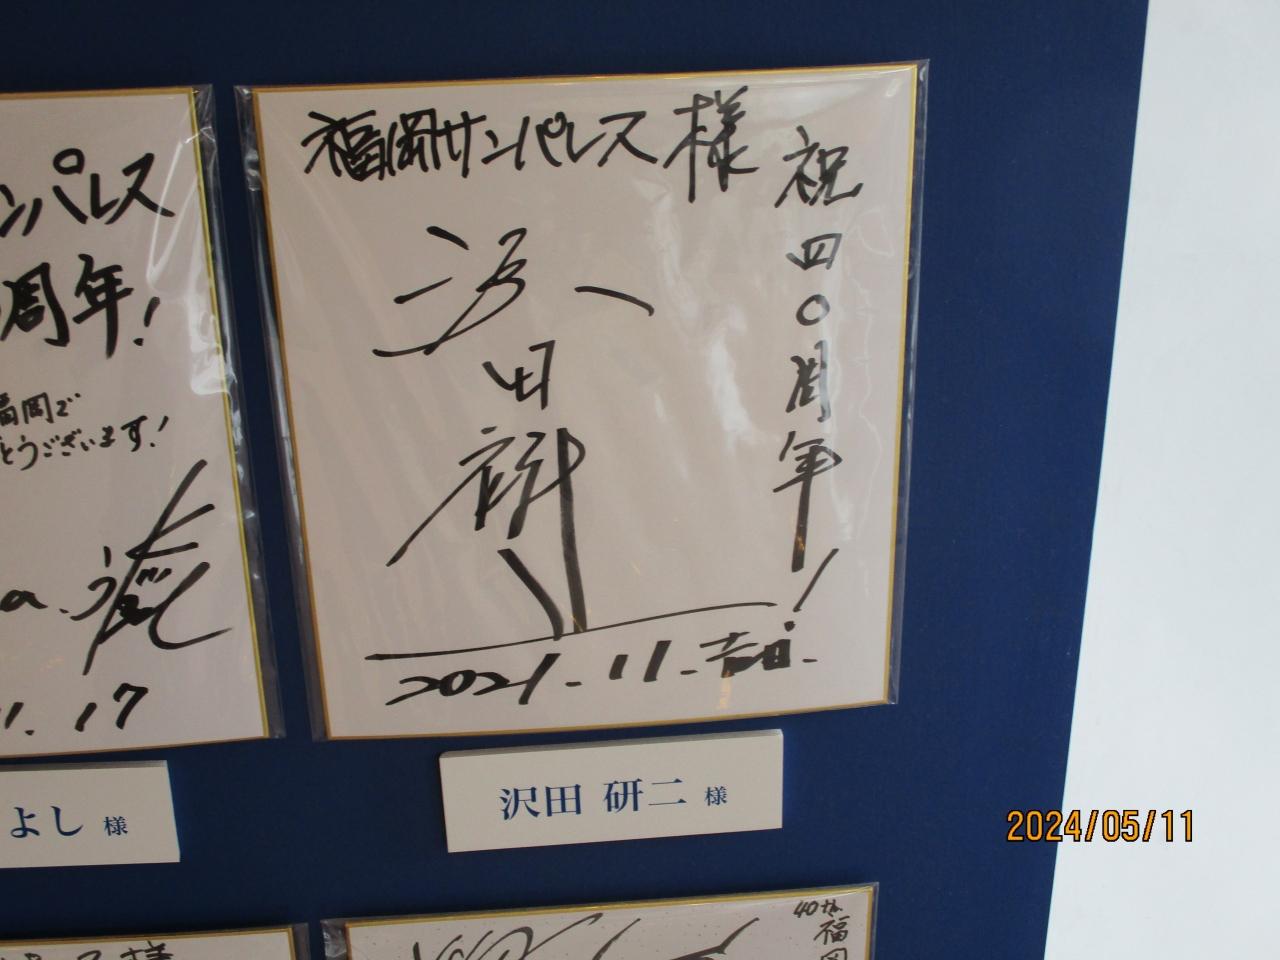 福岡サンパレス様
祝四〇周年!
沢田研二
2021.11.吉日.
沢田 研二 様
ンパレス
周年!
福岡で
とうございます!
a.
1.17
よし 様
様
40th
福岡
2024/05/11